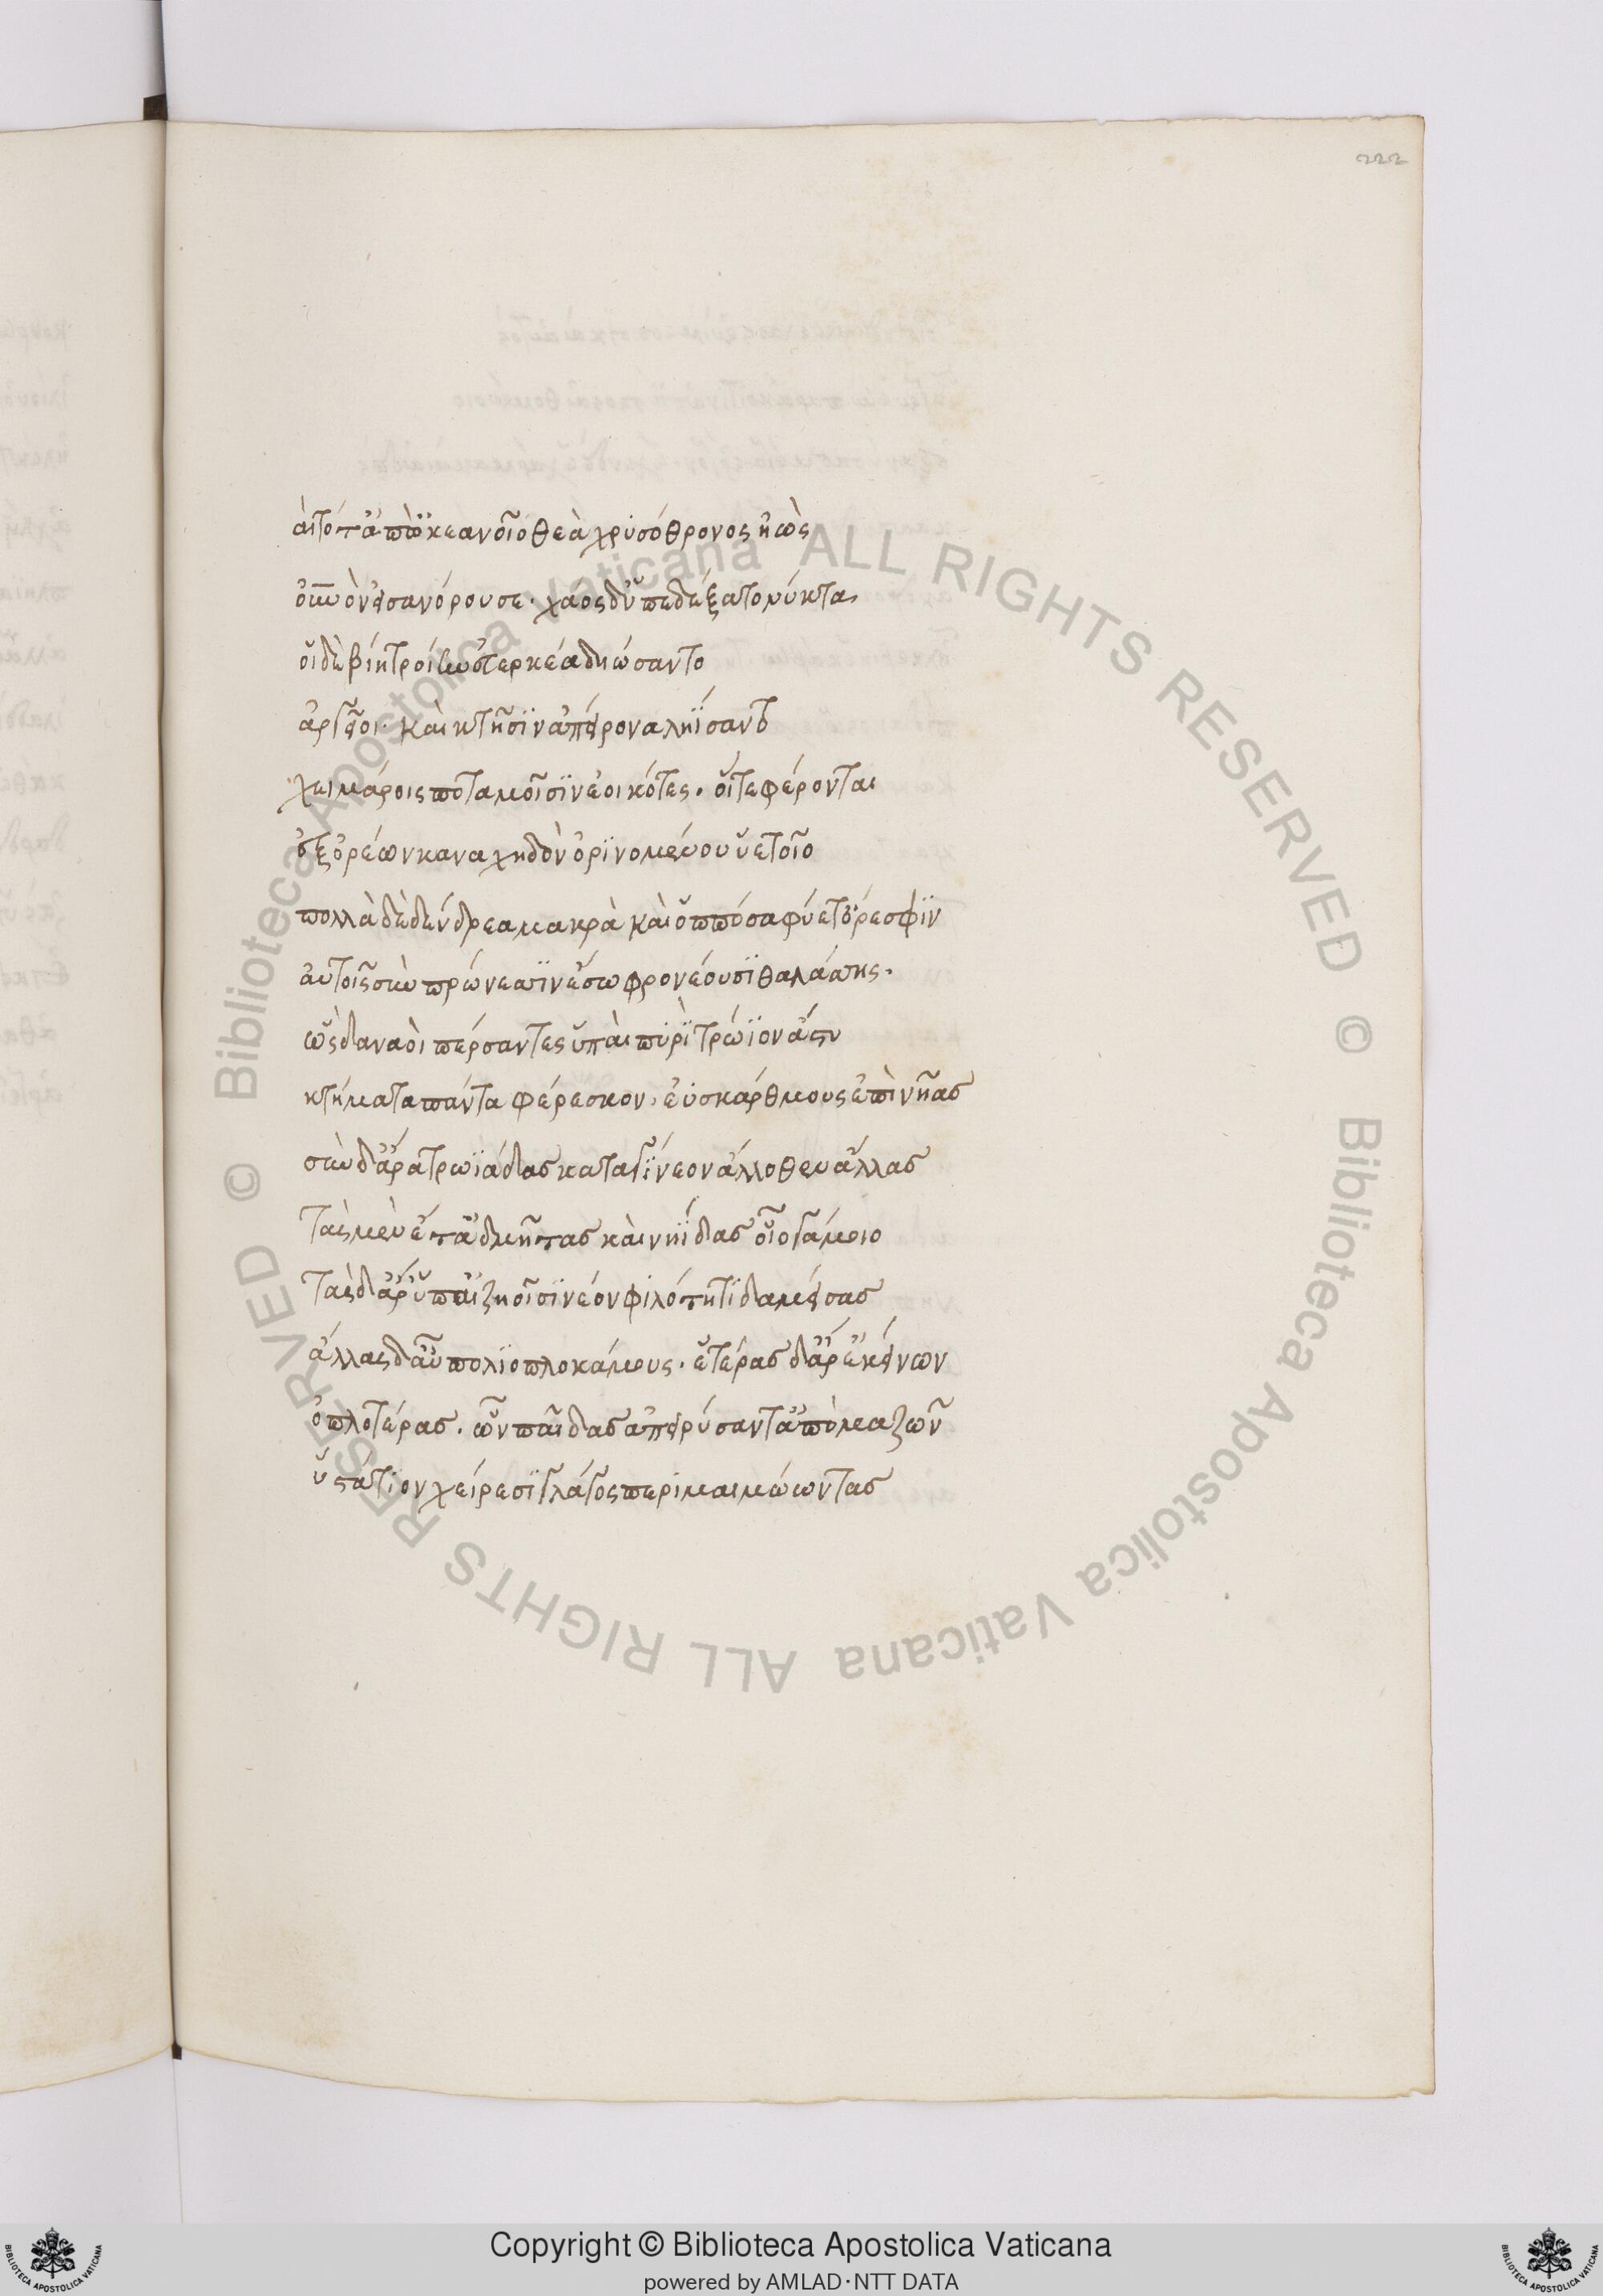 ὰι τότ ἀπ ὠκεανοῖο θεὰ χρυσόθρονος ἠὼς
οὐνὸν εἰσανόρουσε· χάος δ ὑπεδέξατο νύκτα
οἱ δὲ βίη τροίην εὐερκέα δηώσαντο
ἀργεῖοι· καὶ κτῆσϊν ἀπείρονα ληΐσαντο
χειμάροις ποταμοῖσϊν ἐοικότες· οἵ τε φέρονται
ἐξ ὀρέων καναχηδὸν ὀρϊνομένου ὑετοῖο
πολλὰ δὲ δένδρεα μακρὰ καὶ ὁππόσα φύετ ὄρεσφϊν
αὐτοῖς σὺν πρώνεσϊν ἔσω φρονέουσϊ θαλάσσης·
ὣς δαναοὶ πέρσαντες ὑπαὶ πϋρὶ τρώϊον ἄστυ
κτήματα πάντα φέρεσκον· ἐϋσκάρθμους ἐπὶ νῆας
σὺν δ ἄρα τρωϊάδας καταγΐνεον ἄλλοθεν ἄλλας
τὰς μὲν ἔτ ἀδμῆτας καὶ νηΐδας οἷο γάμοιο
τὰς δ ἄρ ὑπ αἰζηοῖσϊ νέον φιλότητϊ δαμείσας
ἄλλας δ αὖ πολϊοπλοκάμους· ἑτέρας δ ἄρ ἐκείνων
ὁπλοτέρας· ὧν παῖδας ἀπειρύσαντ ἀπὸ μαζῶν
ὑστάτϊον χείρεσϊ γλάγος περιμαιμώωντας
222
© Biblioteca Apostolica Vaticana ALL RIGHTS RESERVED © Biblioteca Apostolica Vaticana ALL RIGHTS RESERVED
Copyright © Biblioteca Apostolica Vaticana
powered by AMLAD·NTT DATA
BIBLIOTECA APOSTOLICA VATICANA
BIBLIOTECA APOSTOLICA VATICANA